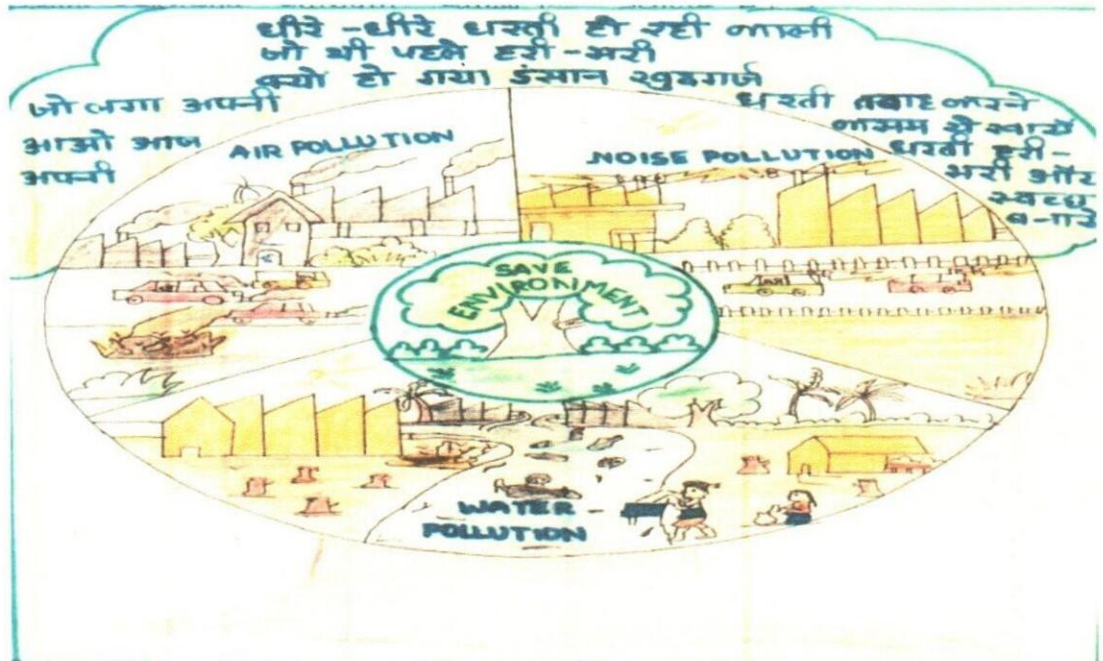 धीरे -धीरे धरती हो रही काली
जो थी पहले हरी -भरी
क्यो हो गया इंसान खुदगर्ज
जो लगा अपनी धरती तबाह करने
आओ आज कसम ये खाये
अपनी धरती हरी-
भरी और
स्वच्छ
बनाये
AIR POLLUTION
NOISE POLLUTION
SAVE
ENVIRONMENT
TAXI
WATER
POLLUTION